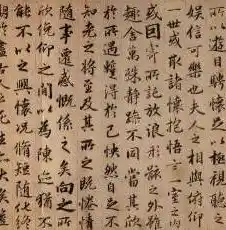 所以遊目騁懷足以極視聽之
娛信可樂也夫人之相與俯仰
一世或取諸懷抱悟言一室之內
或因寄所託放浪形骸之外雖
趣舍萬殊靜躁不同當其欣
於所遇蹔得於己快然自足不
知老之將至及其所之既惓情
隨事遷感慨係之矣向之所
欣俛仰之間以為陳迹猶不
能不以之興懷況脩短隨化終
期於盡古人云死生亦大矣